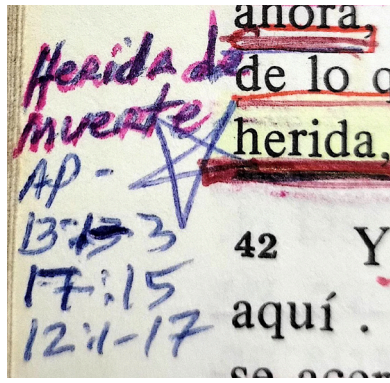 Herida de
muerte
AP -
13:1-3
17:15
12:1-17
ahora,
de lo
herida,
42 Y
aquí .
se